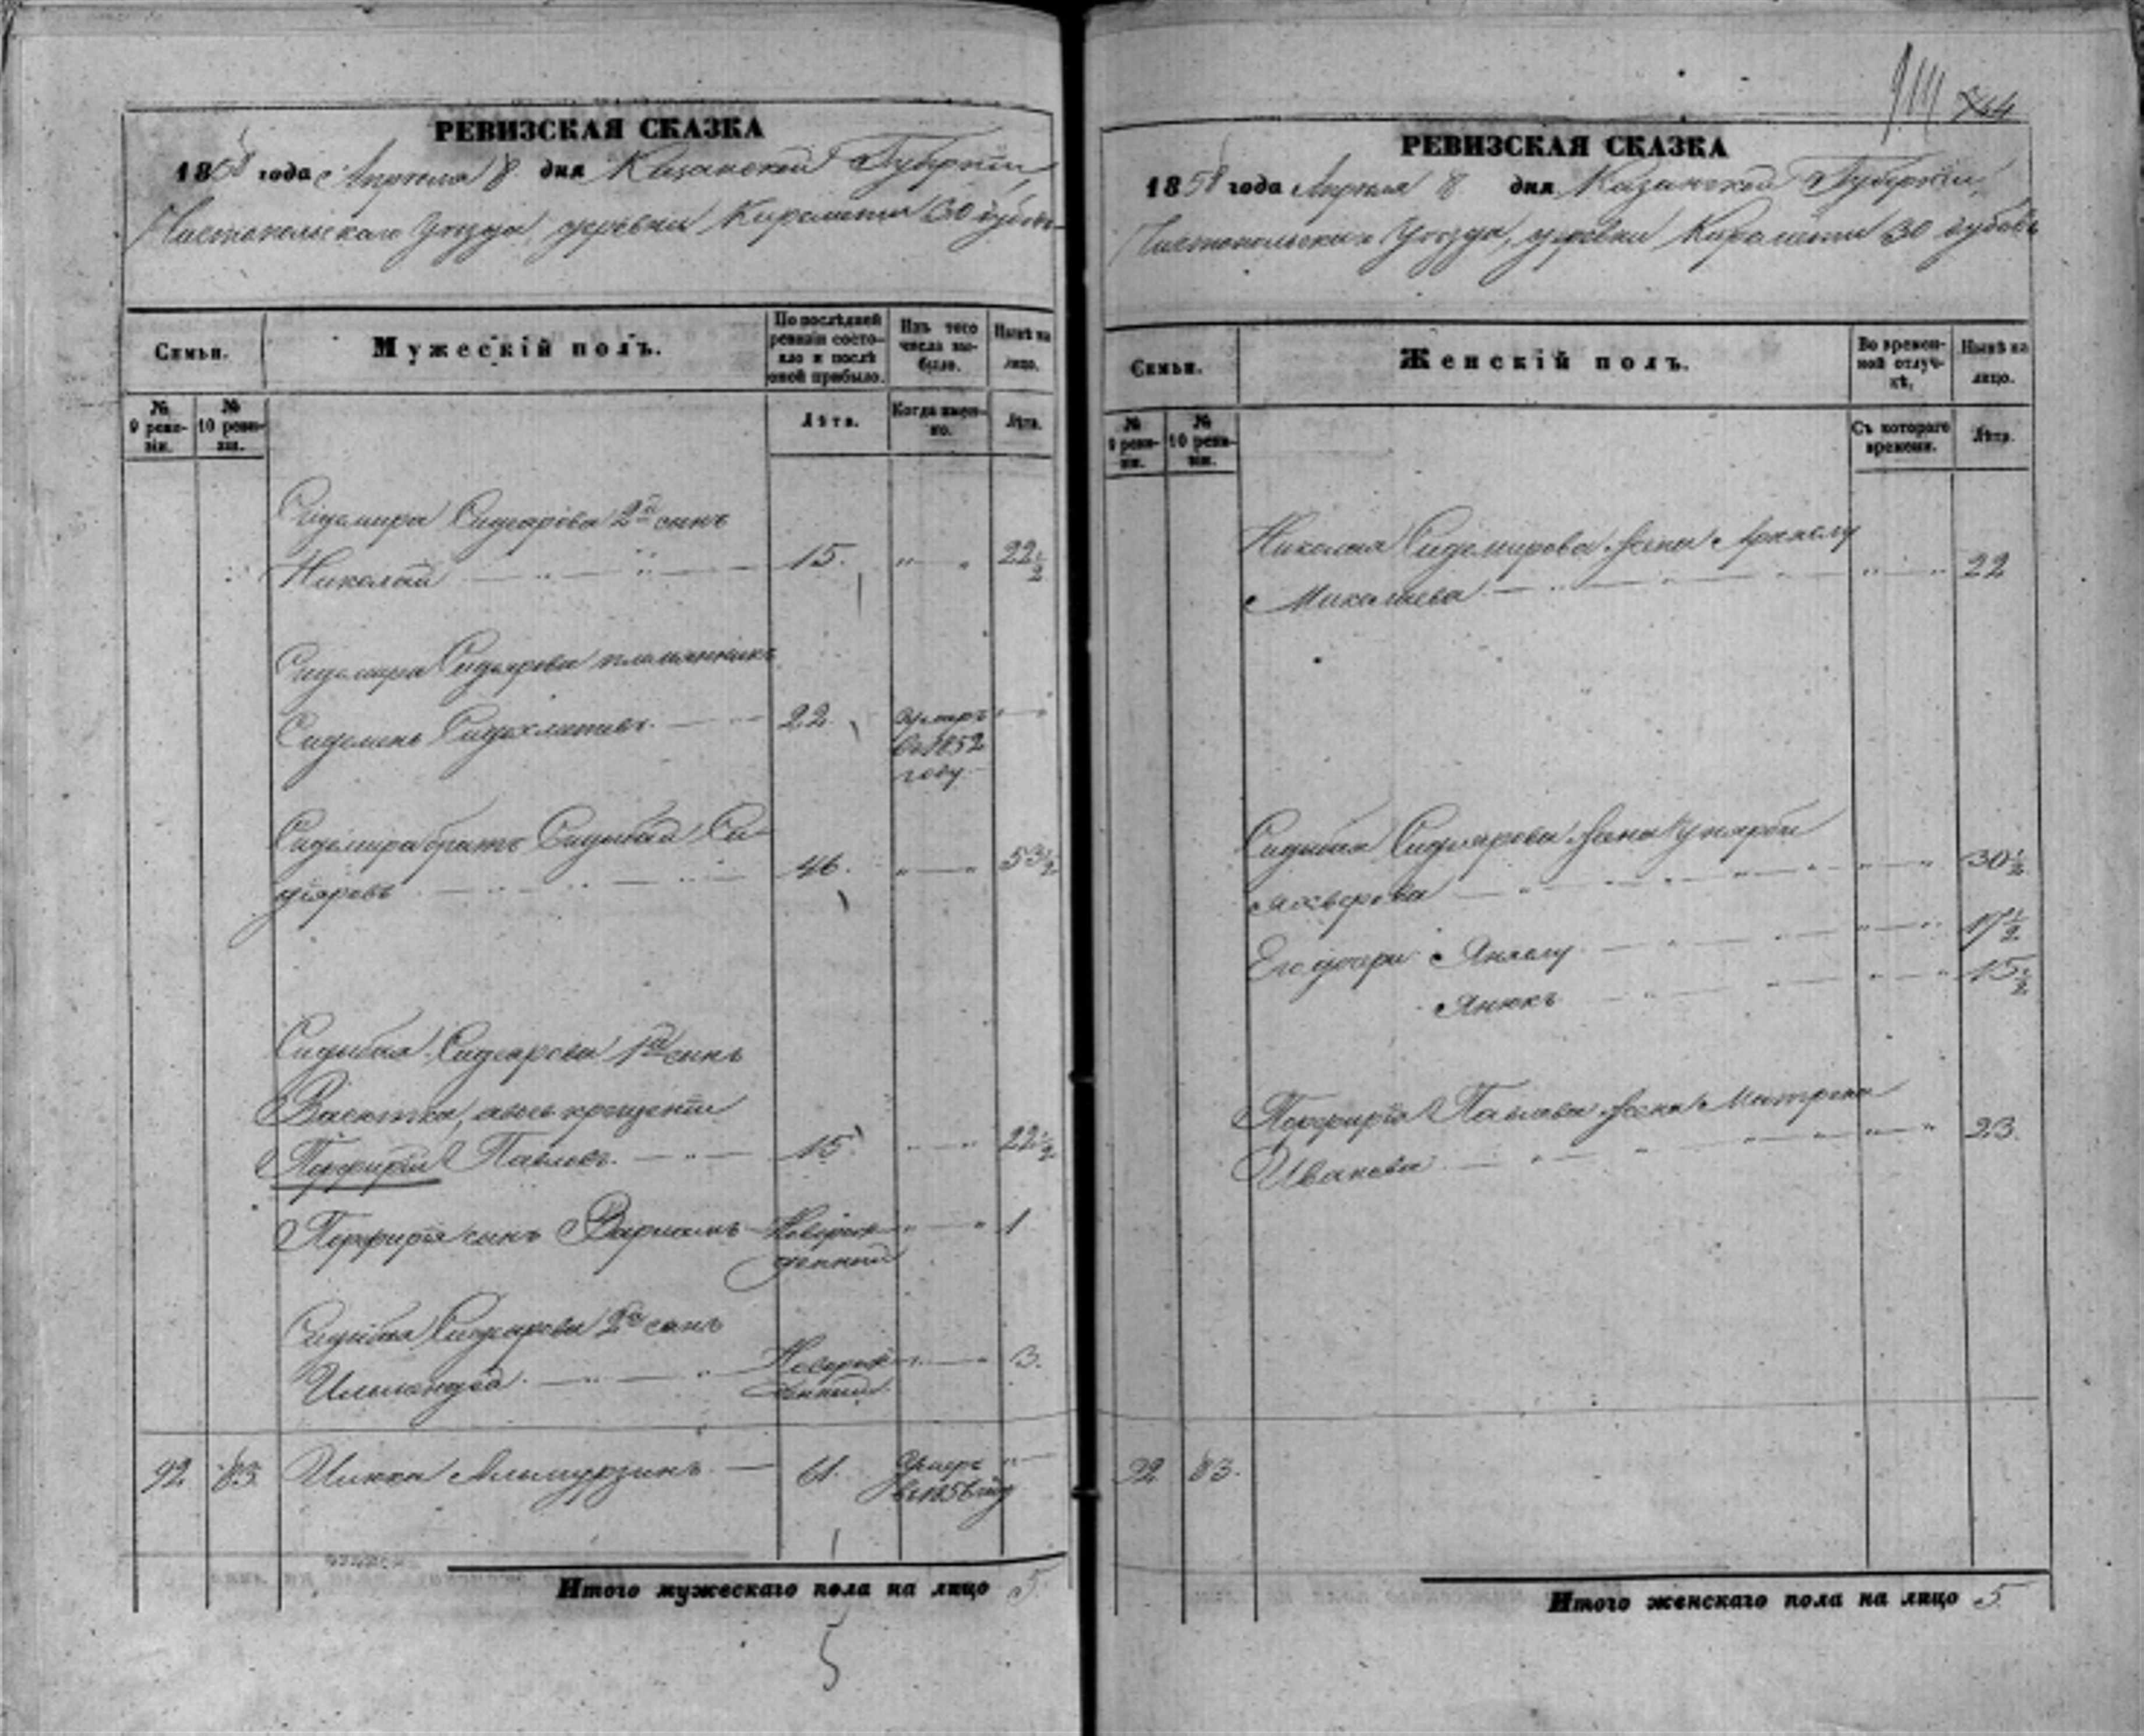 РЕВИЗСКАЯ СКАЗКА
1858 года Апреля 8 дня Казанской Губернiи,
Чистопольскаго Уезда, деревни Киремети 30 дубовъ
Семьи.
Мужескiй полъ.
По послѣдней ревизiи состояло и послѣ оной прибыло.
Изъ того числа выбыло.
Нынѣ на лицо.
№ 9 ревизiи.
№ 10 ревизiи.
Лѣта.
Когда именно.
Лѣта.
Сидемира Сидярова 2й сынъ
Николай 15. 22½
Сидемира Сидярова племянникъ
22. умеръ
въ 1852
году
Сидемира братъ Сидыбай Си-
дяровъ 46. 53½
Сидыбая Сидярова 1й сынъ
Васютка, а въ крещенiи
Порфирiй Павловъ. 15. 22½
Порфирiя сынъ Новорож- 1
денный
Сидыбая Сидярова 2й сынъ
Новорож- 3.
денный
92 83 Алимурзинъ 61. умеръ
въ 1856 году
Итого мужескаго пола на лицо 5.
5
РЕВИЗСКАЯ СКАЗКА
1858 года Апреля 8 дня Казанской Губернiи,
Чистопольскаго Уезда, деревни Киремети 30 дубовъ
Семьи.
Женскiй полъ.
Во временной отлучкѣ.
Нынѣ на лицо.
№ 9 ревизiи.
№ 10 ревизiи.
Съ котораго времени.
Лѣта.
Николая Сидемирова жена
22
Сидыбая Сидярова жена
30½
Его дочери 17½
Анюкъ 15½
Порфирiя Павлова жена Матрена
Иванова 23.
92 83.
Итого женскаго пола на лицо 5